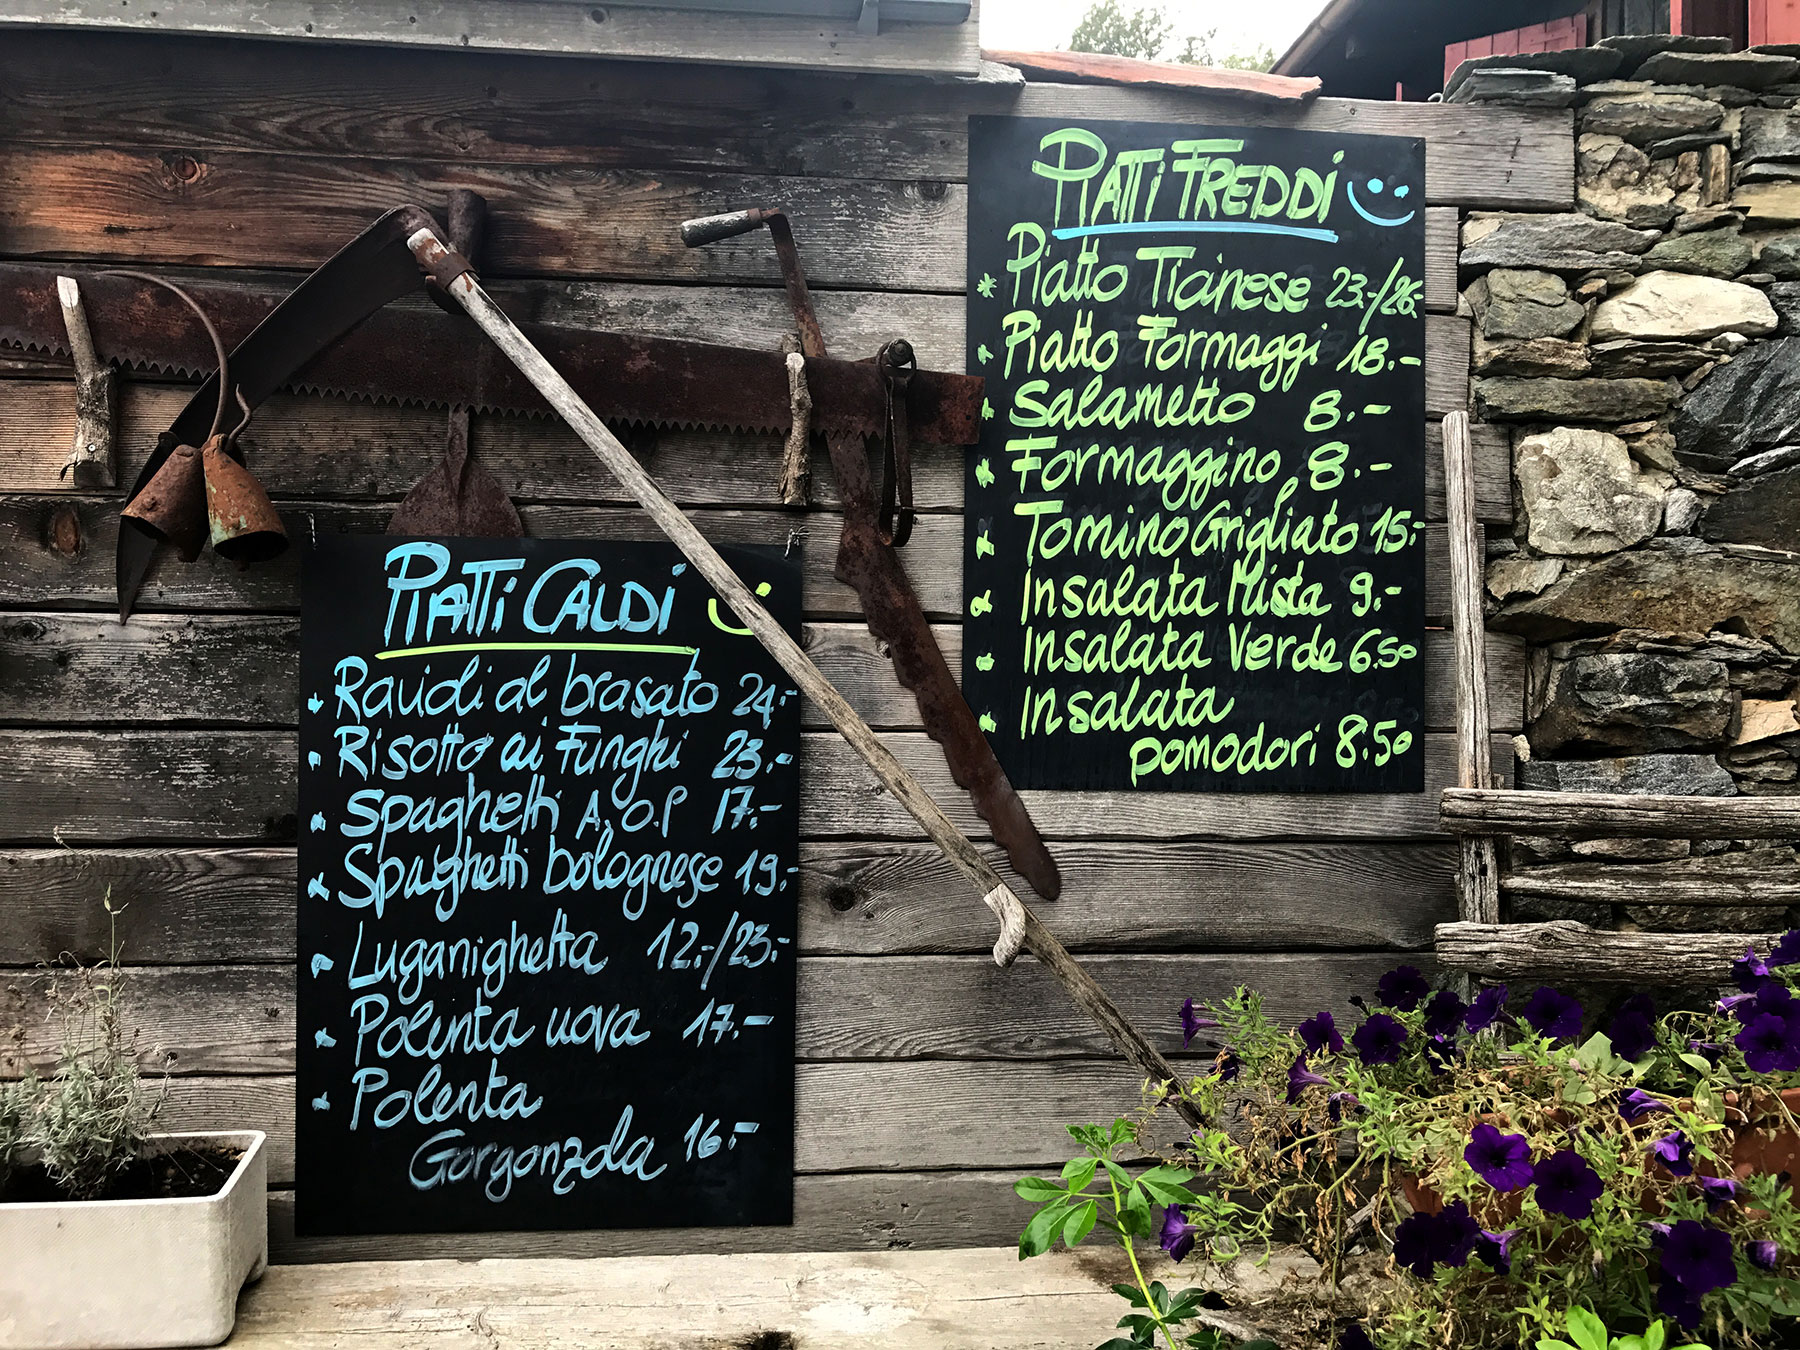 PIATTI CALDI
Ravioli al brasato 24.-
Risotto ai Funghi 23.-
Spaghetti A.O.P 17.-
Spaghetti bolognese 19.-
Luganighetta 12.-/23.-
Polenta uova 17.-
Polenta
Gorgonzola 16.-
PIATTI FREDDI
* Piatto Ticinese 23.-/26.-
Piatto Formaggi 18.-
Salametto 8.-
Formaggino 8.-
Tomino Grigliato 15.-
Insalata Mista 9.-
Insalata Verde 6.50
Insalata
pomodori 8.50